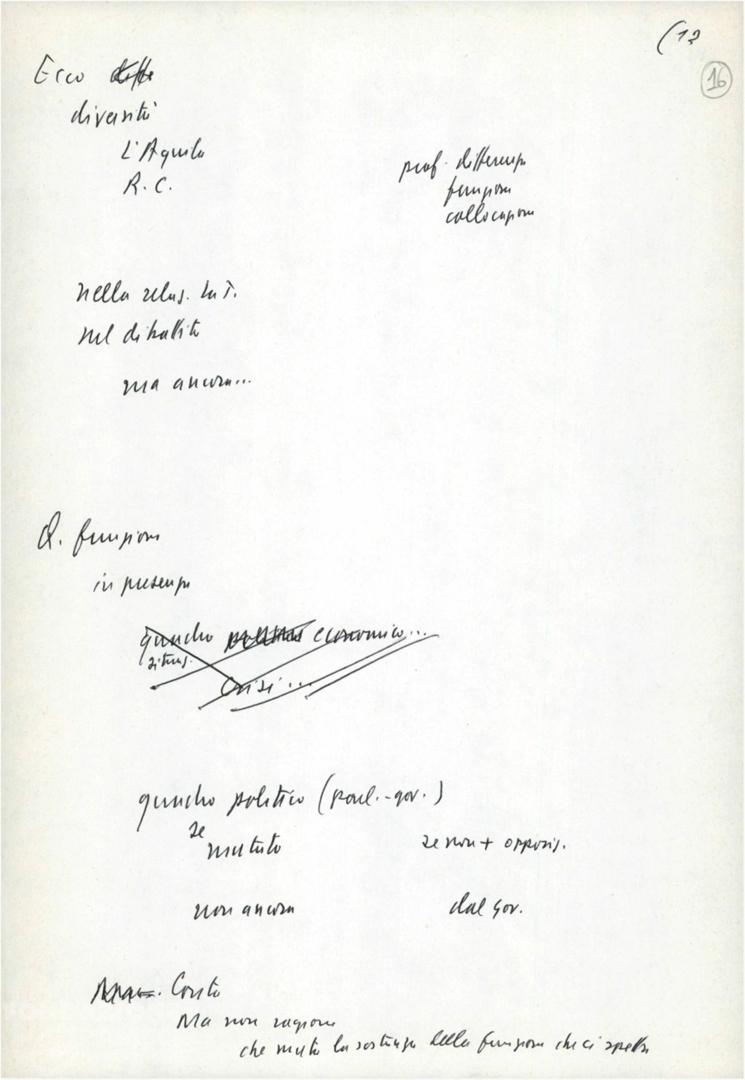 (12
16
Ecco diffe
diversità
L'Aquila
R.C.
prof. differenza
funzione
collocazione
nella relaz.
nel dibattito
ma ancora...
Q. funzione
in presenza
quadro politico economico...
situaz.
Crisi...
quadro politico (parl.-gov.)
se
mutato
se non + opposiz.
non ancora
dal gov.
Conta
Ma non ragione
che muta la sostanza della funzione che ci spetta